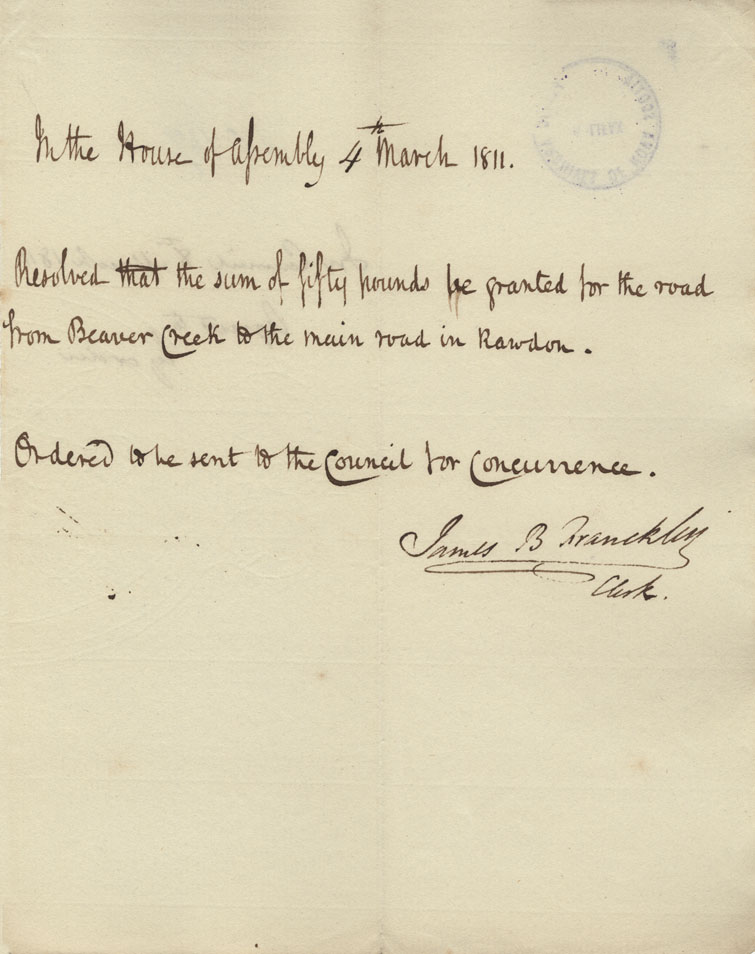 In the House of Assembly 4th March 1811.
Resolved that the sum of fifty pounds be granted for the road
from Beaver Creek to the main road in Rawdon.
Ordered to be sent to the Council for Concurrence.
James B Franckley
Clerk.